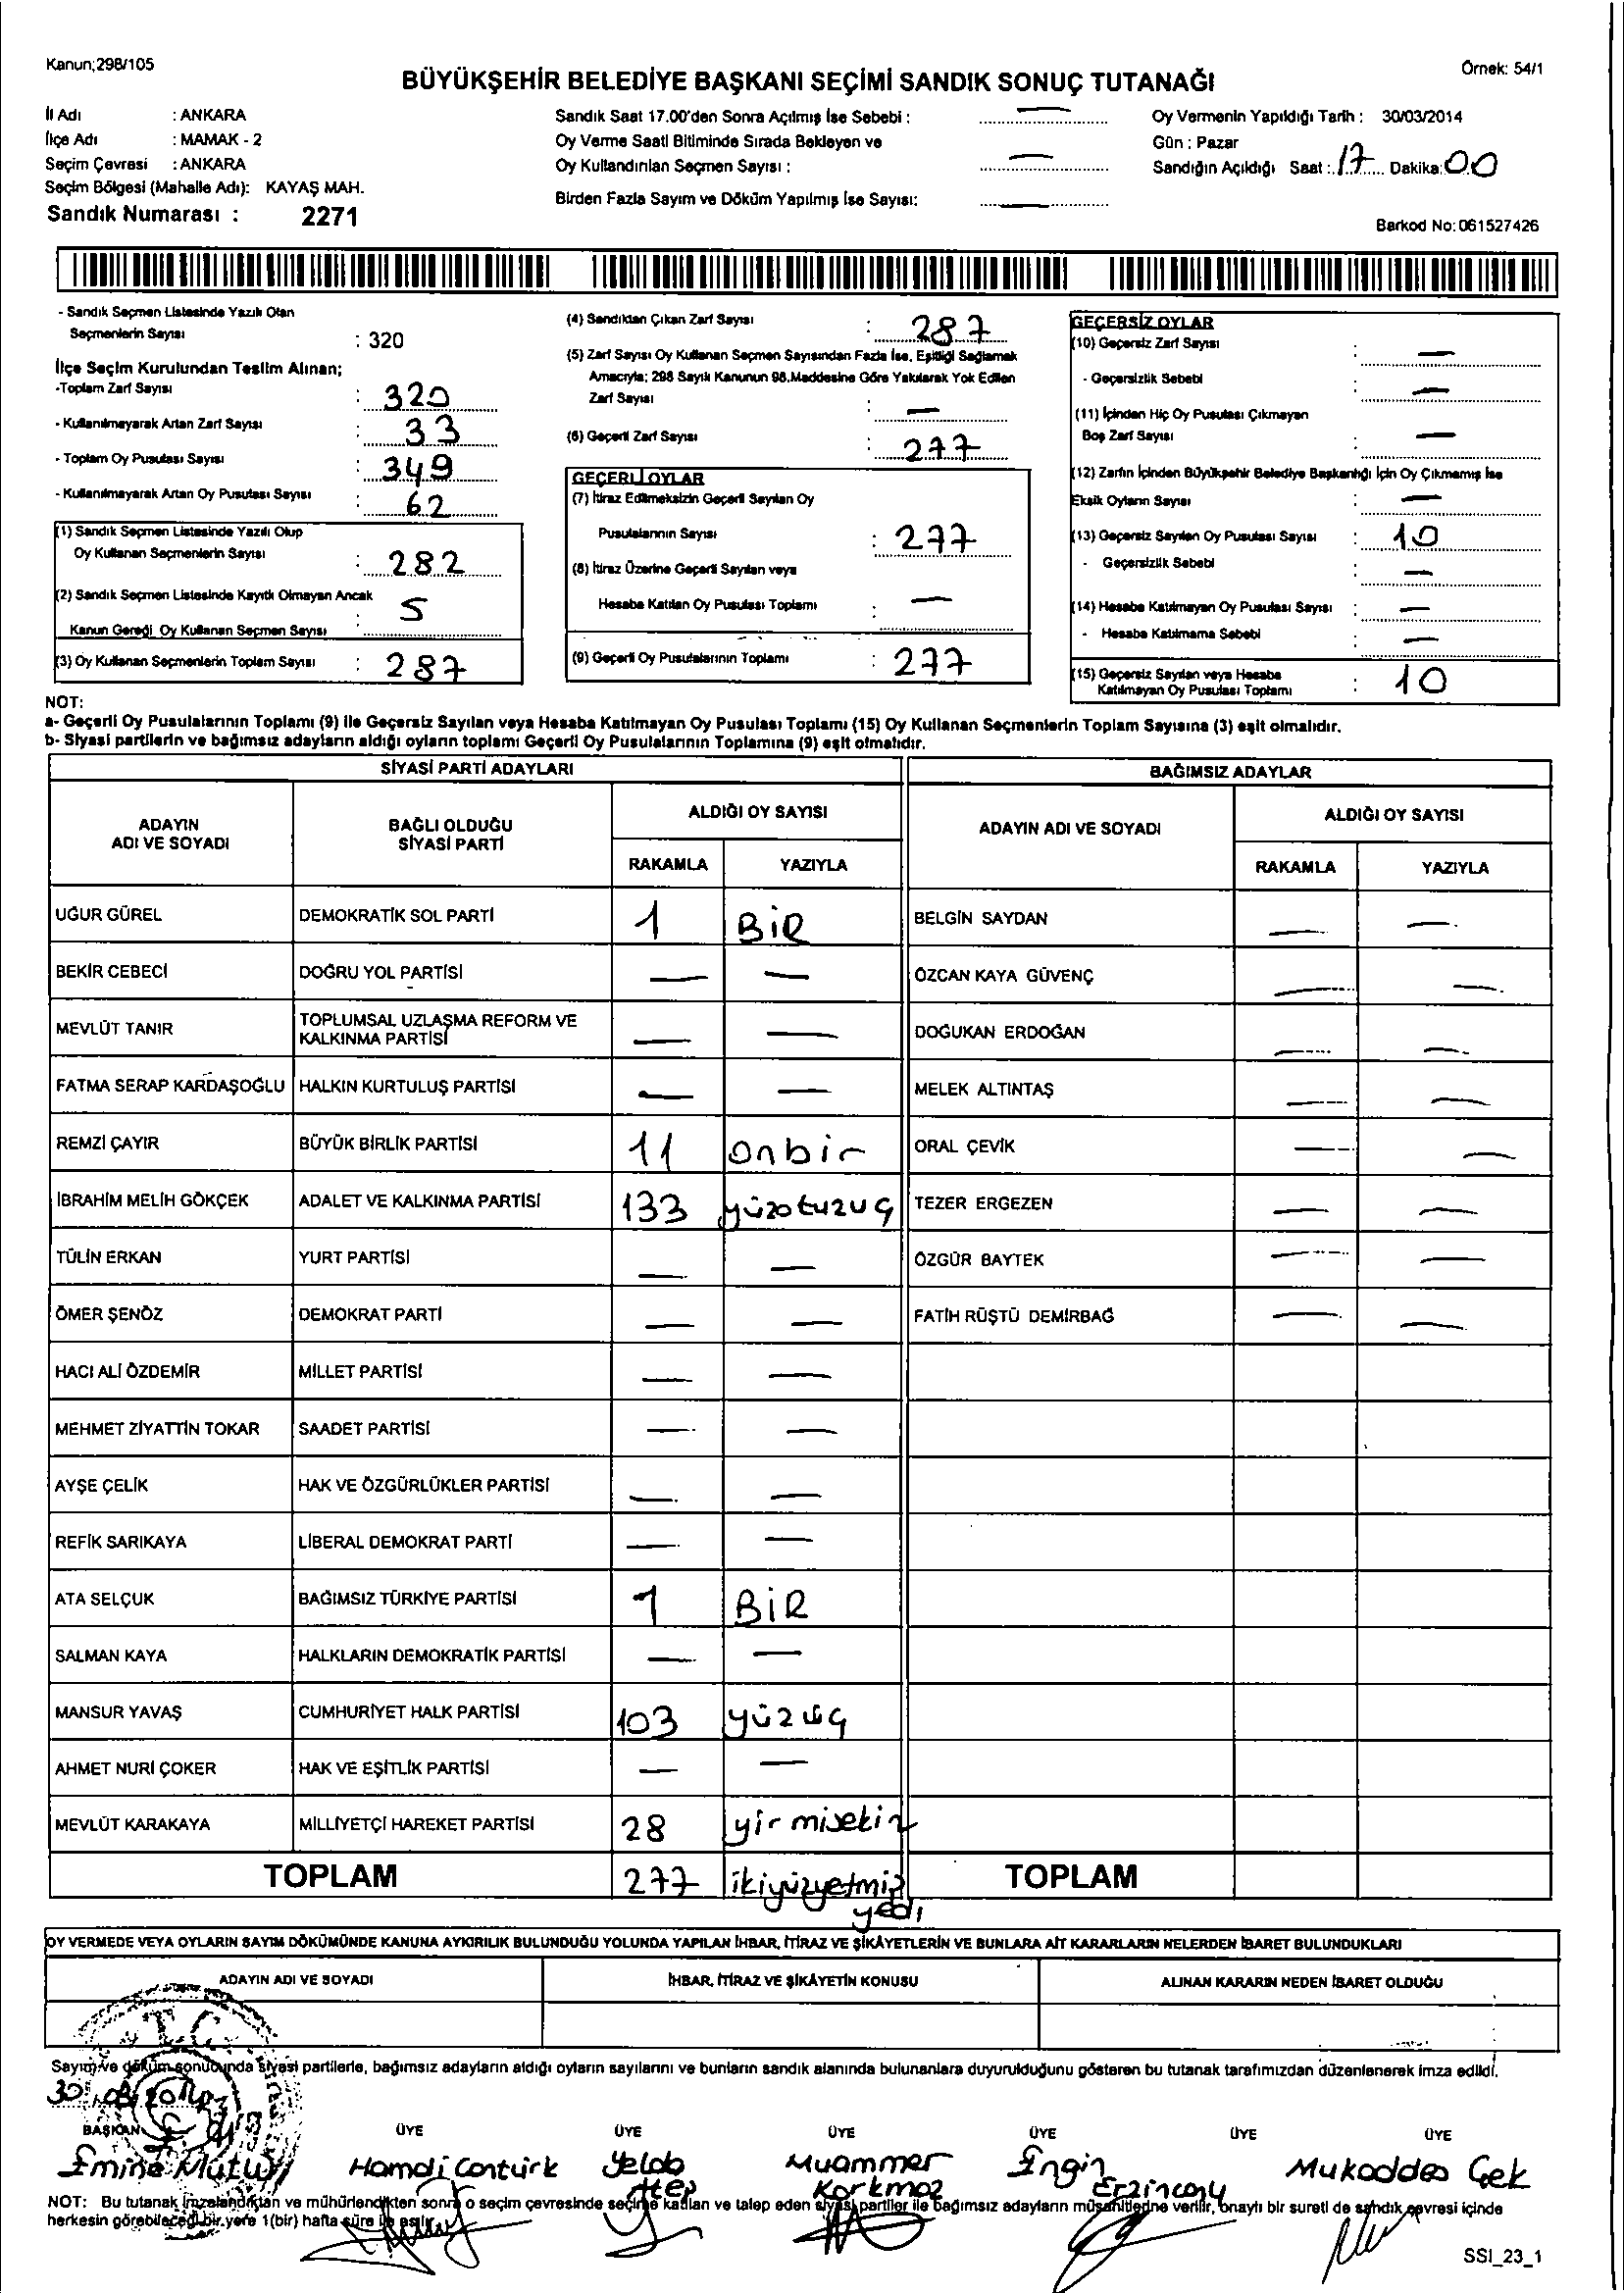 Kanun;298/105
Örnek: 54/1
BÜYÜKŞEHİR BELEDİYE BAŞKANI SEÇİMİ SANDIK SONUÇ TUTANAĞI
İl Adı : ANKARA
İlçe Adı : MAMAK - 2
Seçim Çevresi : ANKARA
Seçim Bölgesi (Mahalle Adı): KAYAŞ MAH.
Sandık Numarası : 2271
Sandık Saat 17.00'den Sonra Açılmış İse Sebebi : —
Oy Verme Saati Bitiminde Sırada Bekleyen ve
Oy Kullandırılan Seçmen Sayısı : —
Birden Fazla Sayım ve Döküm Yapılmış İse Sayısı: —
Oy Vermenin Yapıldığı Tarih : 30/03/2014
Gün : Pazar
Sandığın Açıldığı Saat : 17 Dakika: 00
Barkod No: 061527426
- Sandık Seçmen Listesinde Yazılı Olan
Seçmenlerin Sayısı : 320
İlçe Seçim Kurulundan Teslim Alınan;
-Toplam Zarf Sayısı : 320
- Kullanılmayarak Artan Zarf Sayısı : 33
- Toplam Oy Pusulası Sayısı : 349
- Kullanılmayarak Artan Oy Pusulası Sayısı : 62
(1) Sandık Seçmen Listesinde Yazılı Olup
Oy Kullanan Seçmenlerin Sayısı : 282
(2) Sandık Seçmen Listesinde Kayıtlı Olmayan Ancak
Kanun Gereği Oy Kullanan Seçmen Sayısı : 5
(3) Oy Kullanan Seçmenlerin Toplam Sayısı : 287
(4) Sandıktan Çıkan Zarf Sayısı : 287
(5) Zarf Sayısı Oy Kullanan Seçmen Sayısından Fazla İse, Eşitliği Sağlamak
Amacıyla; 298 Sayılı Kanunun 98.Maddesine Göre Yakılarak Yok Edilen
Zarf Sayısı : —
(6) Geçerli Zarf Sayısı : 277
GEÇERLİ OYLAR
(7) İtiraz Edilmeksizin Geçerli Sayılan Oy
Pusulalarının Sayısı : 277
(8) İtiraz Üzerine Geçerli Sayılan veya
Hesaba Katılan Oy Pusulası Toplamı : —
(9) Geçerli Oy Pusulalarının Toplamı : 277
GEÇERSİZ OYLAR
(10) Geçersiz Zarf Sayısı : —
- Geçersizlik Sebebi : —
(11) İçinden Hiç Oy Pusulası Çıkmayan
Boş Zarf Sayısı : —
(12) Zarfın İçinden Büyükşehir Belediye Başkanlığı İçin Oy Çıkmamış İse
Eksik Oyların Sayısı : —
(13) Geçersiz Sayılan Oy Pusulası Sayısı : 10
- Geçersizlik Sebebi : —
(14) Hesaba Katılmayan Oy Pusulası Sayısı : —
- Hesaba Katılmama Sebebi : —
(15) Geçersiz Sayılan veya Hesaba
Katılmayan Oy Pusulası Toplamı : 10
NOT:
a- Geçerli Oy Pusulalarının Toplamı (9) ile Geçersiz Sayılan veya Hesaba Katılmayan Oy Pusulası Toplamı (15) Oy Kullanan Seçmenlerin Toplam Sayısına (3) eşit olmalıdır.
b- Siyasi partilerin ve bağımsız adayların aldığı oyların toplamı Geçerli Oy Pusulalarının Toplamına (9) eşit olmalıdır.
SİYASİ PARTİ ADAYLARI
ADAYIN ADI VE SOYADI
BAĞLI OLDUĞU SİYASİ PARTİ
ALDIĞI OY SAYISI
RAKAMLA YAZIYLA
UĞUR GÜREL DEMOKRATİK SOL PARTİ 1 BİR
BEKİR CEBECİ DOĞRU YOL PARTİSİ — —
MEVLÜT TANIR TOPLUMSAL UZLAŞMA REFORM VE KALKINMA PARTİSİ — —
FATMA SERAP KARDAŞOĞLU HALKIN KURTULUŞ PARTİSİ — —
REMZİ ÇAYIR BÜYÜK BİRLİK PARTİSİ 11 onbir
İBRAHİM MELİH GÖKÇEK ADALET VE KALKINMA PARTİSİ 133 yüzotuzuç
TÜLİN ERKAN YURT PARTİSİ — —
ÖMER ŞENÖZ DEMOKRAT PARTİ — —
HACI ALİ ÖZDEMİR MİLLET PARTİSİ — —
MEHMET ZİYATTİN TOKAR SAADET PARTİSİ — —
AYŞE ÇELİK HAK VE ÖZGÜRLÜKLER PARTİSİ — —
REFİK SARIKAYA LİBERAL DEMOKRAT PARTİ — —
ATA SELÇUK BAĞIMSIZ TÜRKİYE PARTİSİ 1 BİR
SALMAN KAYA HALKLARIN DEMOKRATİK PARTİSİ — —
MANSUR YAVAŞ CUMHURİYET HALK PARTİSİ 103 yüzüç
AHMET NURİ ÇOKER HAK VE EŞİTLİK PARTİSİ — —
MEVLÜT KARAKAYA MİLLİYETÇİ HAREKET PARTİSİ 28 yirmisekiz
TOPLAM 277 ikiyüzyetmiş yedi
BAĞIMSIZ ADAYLAR
ADAYIN ADI VE SOYADI
ALDIĞI OY SAYISI
RAKAMLA YAZIYLA
BELGİN SAYDAN — —
ÖZCAN KAYA GÜVENÇ — —
DOĞUKAN ERDOĞAN — —
MELEK ALTINTAŞ — —
ORAL ÇEVİK — —
TEZER ERGEZEN — —
ÖZGÜR BAYTEK — —
FATİH RÜŞTÜ DEMİRBAĞ — —
TOPLAM
OY VERMEDE VEYA OYLARIN SAYIM DÖKÜMÜNDE KANUNA AYKIRILIK BULUNDUĞU YOLUNDA YAPILAN İHBAR, İTİRAZ VE ŞİKÂYETLERİN VE BUNLARA AİT KARARLARIN NELERDEN İBARET BULUNDUKLARI
ADAYIN ADI VE SOYADI
İHBAR, İTİRAZ VE ŞİKÂYETİN KONUSU
ALINAN KARARIN NEDEN İBARET OLDUĞU
T.C.
Sayım ve döküm sonucunda siyasi partilerle, bağımsız adayların aldığı oyların sayılarını ve bunların sandık alanında bulunanlara duyurulduğunu gösteren bu tutanak tarafımızdan düzenlenerek imza edildi.
BAŞKAN ÜYE ÜYE ÜYE ÜYE ÜYE ÜYE
Emine Mutlu Hamdi Contürk Yelda Atep Muammer Korkmaz Engin Erzincanlı Mukaddes Çek
NOT: Bu tutanak İmzalandıktan ve mühürlendikten sonra o seçim çevresinde seçime katılan ve talep eden siyasi partiler ile bağımsız adayların müşahitlerine verilir, onaylı bir sureti de sandık çevresi içinde
herkesin görebileceği bir yere 1(bir) hafta süre ile asılır.
SSI_23_1